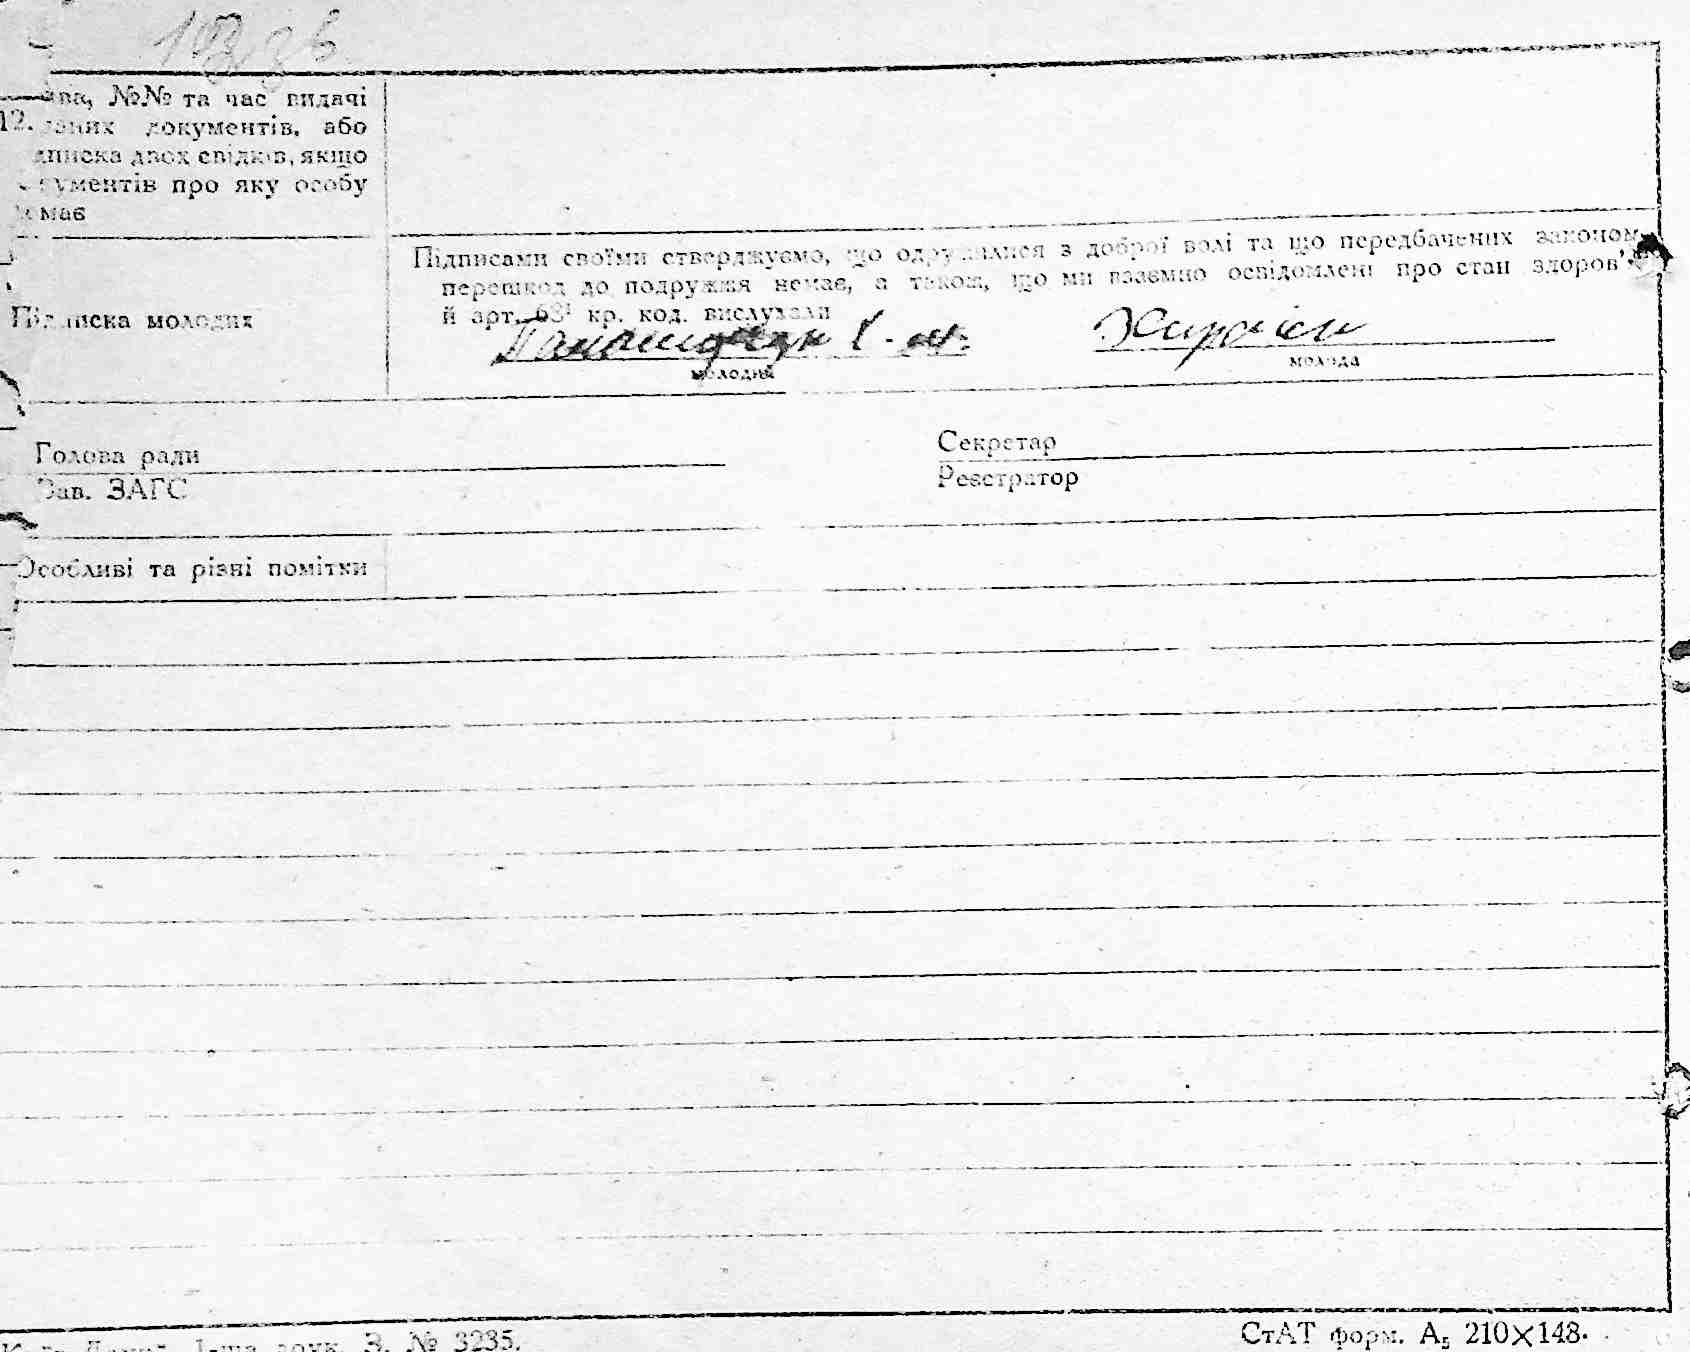 №№ та час видачі
12.
документів, або
двох свідків, якщо
про яку особу
має
Підписами своїми стверджуємо, що одружилися з доброї волі та що передбачених законом
перешкод до подружжя немає, а також, що ми взаємно освідомлені про стан здоров'я
й арт. 63¹ кр. код. вислухали
Підписка молодих
молодий
молода
Голова ради
Секретар
Зав. ЗАГС
Реєстратор
Особливі та різні помітки
З. № 3235.
СтАТ форм. А₅ 210×148.